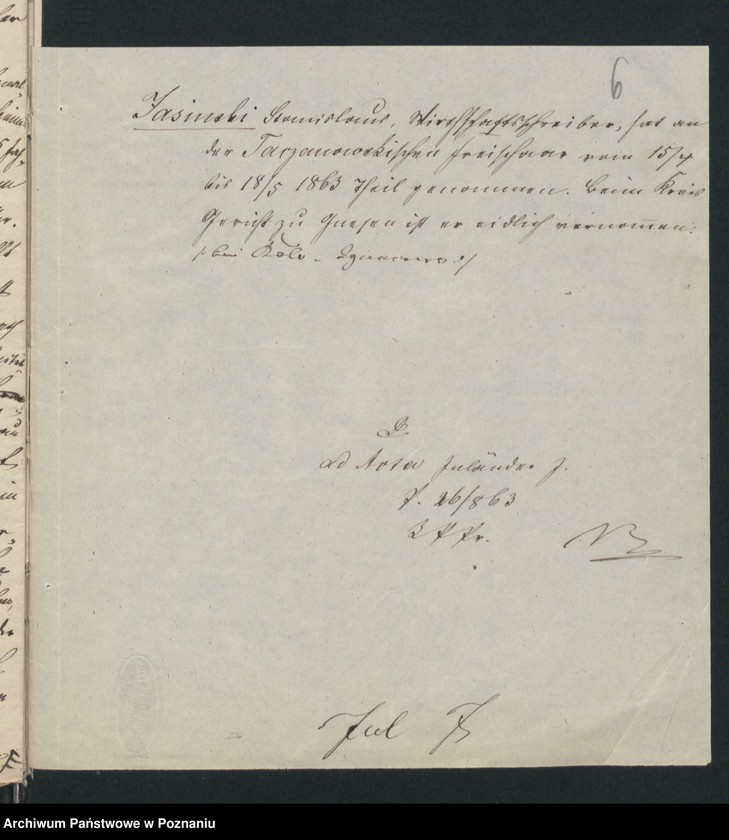 6
Jasinski Stanislaus, Wirthschaftsschreiber, hat an
der Taczanowskischen Freischaar vom 15/4
bis 18/5 1863 Theil genommen. Beim Kreis
Gericht zu Gnesen ist er eidlich vernommen.
/: bei Kolo - Ignacewo :/
B.
ad Acta Inländer J.
P. 26/863
Inl J
Archiwum Państwowe w Poznaniu